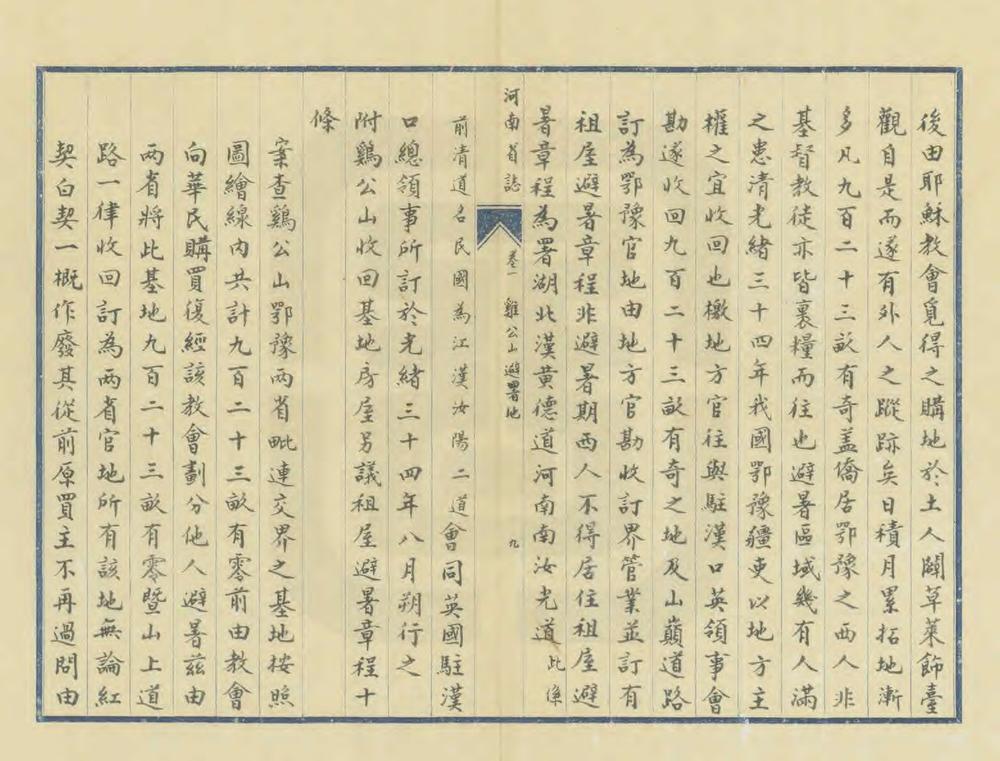 後由耶穌教會覓得之購地於土人闢草萊飾臺
觀自是而遂有外人之蹤跡矣日積月累拓地漸
多凡九百二十三畝有奇盖僑居鄂豫之西人非
基督教徒亦皆裹糧而往也避暑區域幾有人滿
之患清光緒三十四年我國鄂豫疆吏以地方主
權之宜收回也檄地方官往與駐漢口英領事會
勘遂收回九百二十三畝有奇之地及山巔道路
訂為鄂豫官地由地方官勘收訂界管業並訂有
租屋避暑章程非避暑期西人不得居住租屋避
暑章程為署湖北漢黃德道河南南汝光道此係
河南省誌 卷一 雞公山避暑地 九
前清道名民國為江漢汝陽二道會同英國駐漢
口總領事所訂於光緒三十四年八月朔行之
附鷄公山收回基地房屋另議租屋避暑章程十
條
案查鷄公山鄂豫兩省毗連交界之基地按照
圖繪線內共計九百二十三畝有零前由教會
向華民購買復經該教會劃分他人避暑茲由
兩省將此基地九百二十三畝有零暨山上道
路一律收回訂為兩省官地所有該地無論紅
契白契一概作廢其從前原買主不再過問由